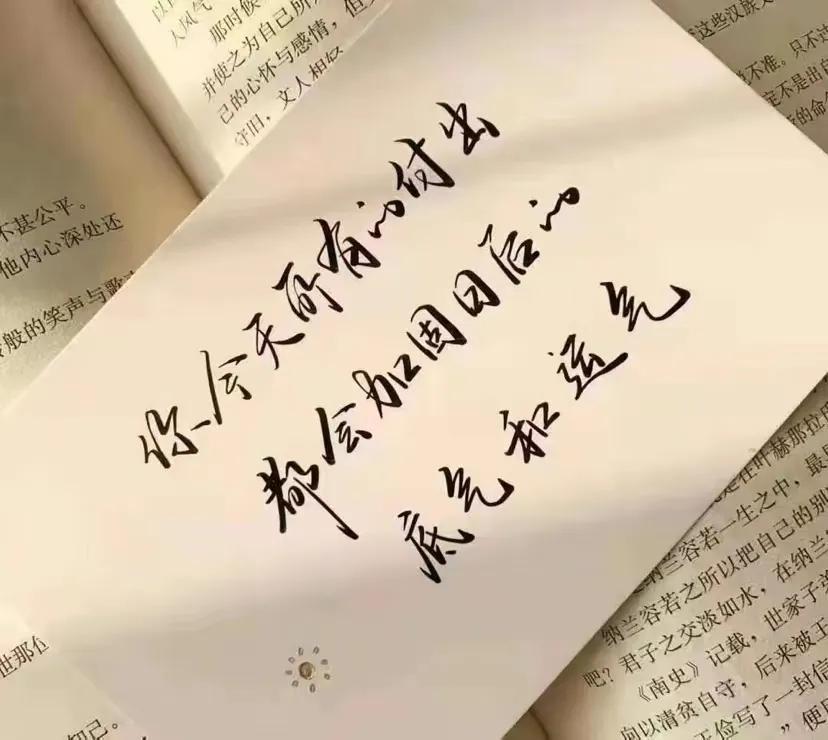 你今天所有的付出
都会加固日后的
底气和运气
人风气
那时候
并使之为自己所
己的心怀与感情，但
守旧，文人相轻
不甚公平。
他内心深处还
般的笑声与歌
世那位
知己。
这些汉族文
不准。只不过
定不是出自
的命
是在叶赫那拉
纳兰容若一生之中，最
纳兰容若之所以把自己的别
吧？君子之交淡如水，在纳兰
《南史》记载，世家子弟
向以清贫自守，后来被王
俭写了一封信
”便用